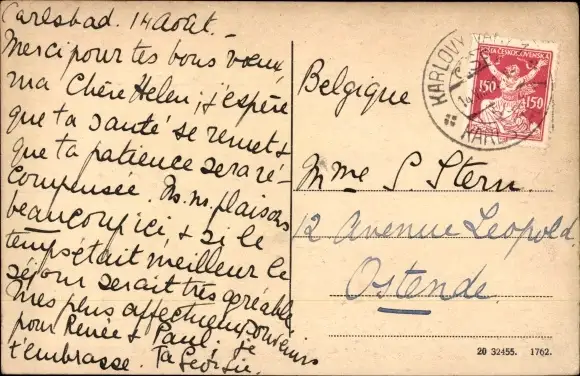 Carlsbad. 14 Août.
Merci pour tes bons vœux,
ma Chère Helen; j'espère
que ta santé se remet &
que ta patience sera ré-
compensée. Ns. ns. plaisons
beaucoup ici & si le
temps était meilleur le
séjour serait très agréable.
Mes plus affectueux souvenirs
pour Renée & Paul. Je
t'embrasse. Ta
KARLOVY VARY
POŠTA ČESKOSLOVENSKÁ
150 150
Belgique
Mme S. Stern
12 Avenue Leopold
Ostende
20 32455. 1762.